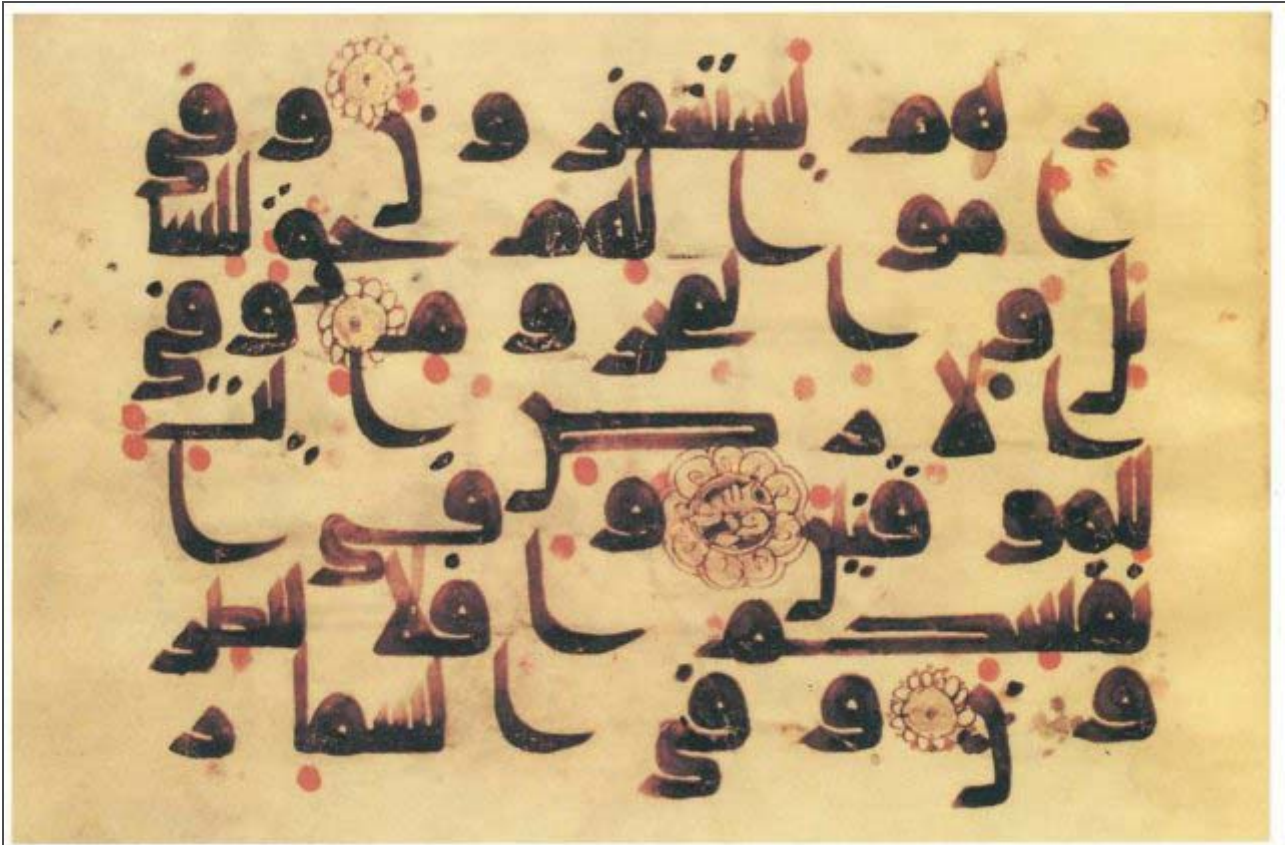 ر هم يستغفرون وفي
أموالهم حق للسا
ئل والمحروم وفي
الأرض آيت
للموقنين وفي أ
نفسكم أفلا تبصرو
ن وفي السما ر